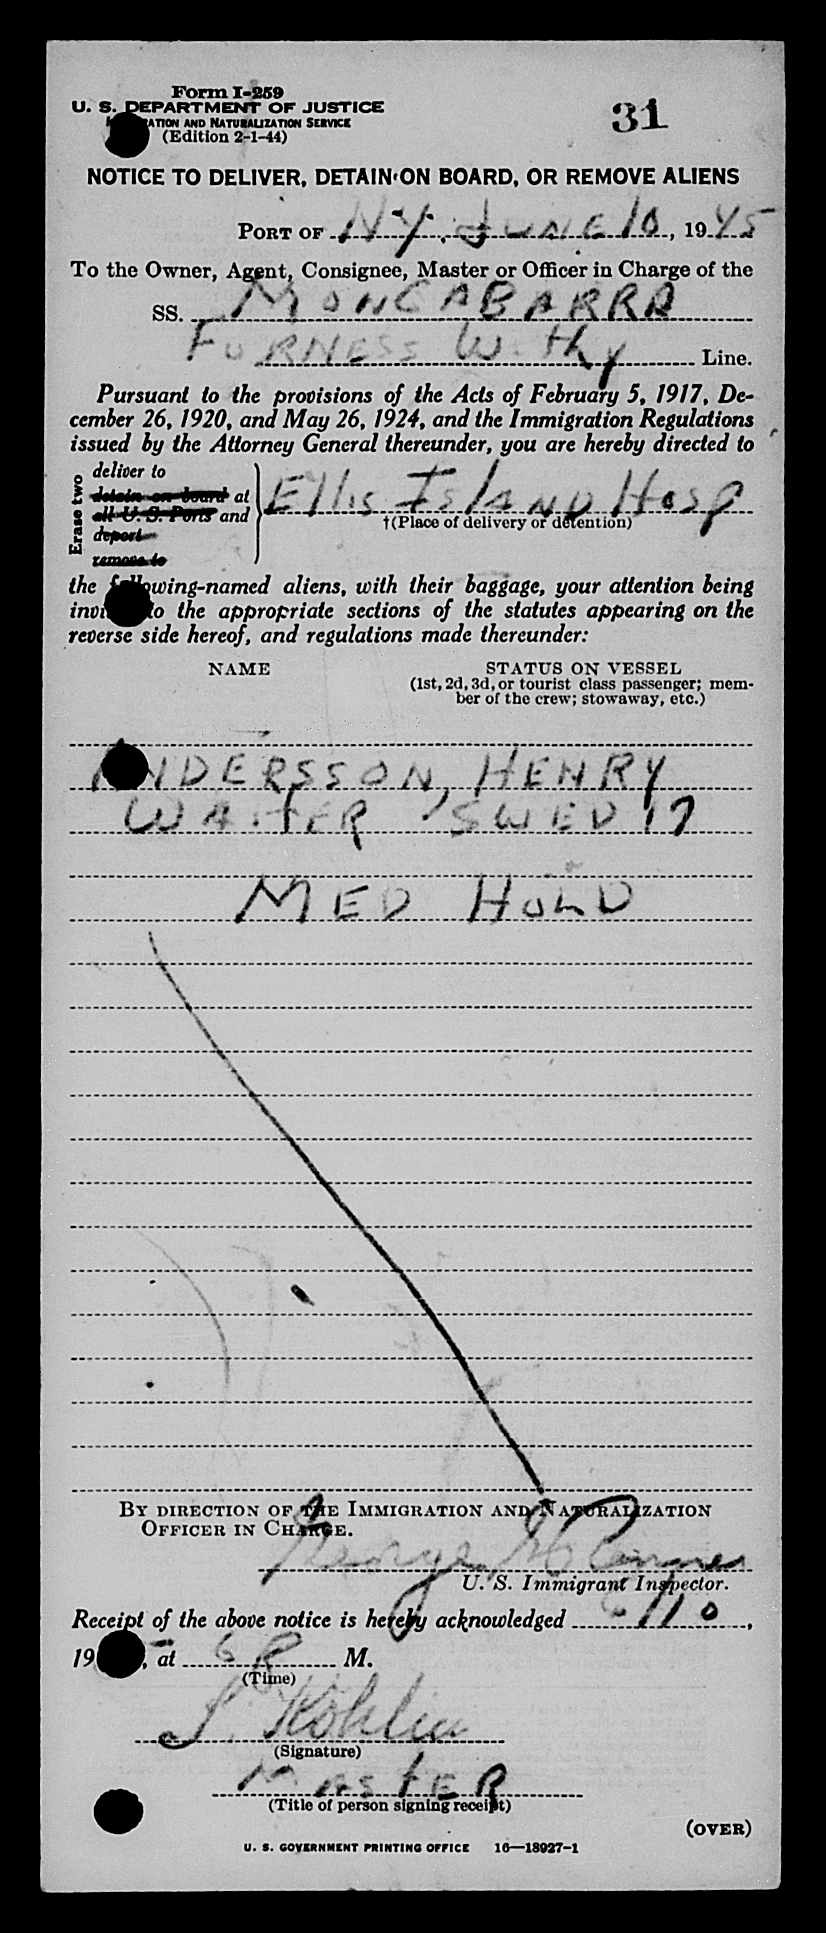 Form I-259
U. S. DEPARTMENT OF JUSTICE
AND NATURALIZATION SERVICE
(Edition 2-1-44)
31
NOTICE TO DELIVER, DETAIN ON BOARD, OR REMOVE ALIENS
PORT OF NY, JUNE 10, 1945
To the Owner, Agent, Consignee, Master or Officer in Charge of the
SS. MONCABARRA
FURNESS Withy Line.
Pursuant to the provisions of the Acts of February 5, 1917, De-
cember 26, 1920, and May 26, 1924, and the Immigration Regulations
issued by the Attorney General thereunder, you are hereby directed to
Erase two
deliver to
detain on board at
all U. S. Ports and
deport
remove to
Ellis Island Hosp
†(Place of delivery or detention)
the following-named aliens, with their baggage, your attention being
to the appropriate sections of the statutes appearing on the
reverse side hereof, and regulations made thereunder:
NAME STATUS ON VESSEL
(1st, 2d, 3d, or tourist class passenger; mem-
ber of the crew; stowaway, etc.)
ANDERSSON, HENRY
WAITER SWED 17
MED HOLD
BY DIRECTION OF THE IMMIGRATION AND NATURALIZATION
OFFICER IN CHARGE.
George
U. S. Immigrant Inspector.
Receipt of the above notice is hereby acknowledged 6/10,
19 , at 6 P M.
(Time)
Kohlin
(Signature)
MASTER
(Title of person signing receipt)
(OVER)
U. S. GOVERNMENT PRINTING OFFICE 16—18927-1